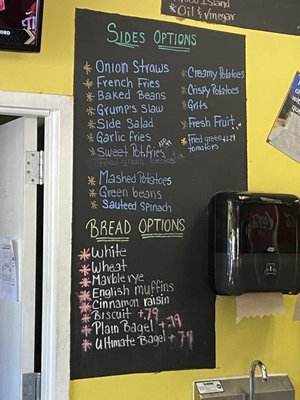 Island
Oil & vinegar
SIDES OPTIONS
Onion Straws
French Fries
Baked Beans
Grump's slaw
Side Salad
Garlic fries
Sweet Pot.fries
Mashed Potatoes
Green beans
Sauteed Spinach
Creamy Potatoes
Crispy Potatoes
Grits
Fresh Fruit
Fried green +1.29
tomatoes
BREAD OPTIONS
White
Wheat
Marble rye
English muffins
Cinnamon raisin
Biscuit +.79
Plain Bagel +.79
Ultimate Bagel +.79